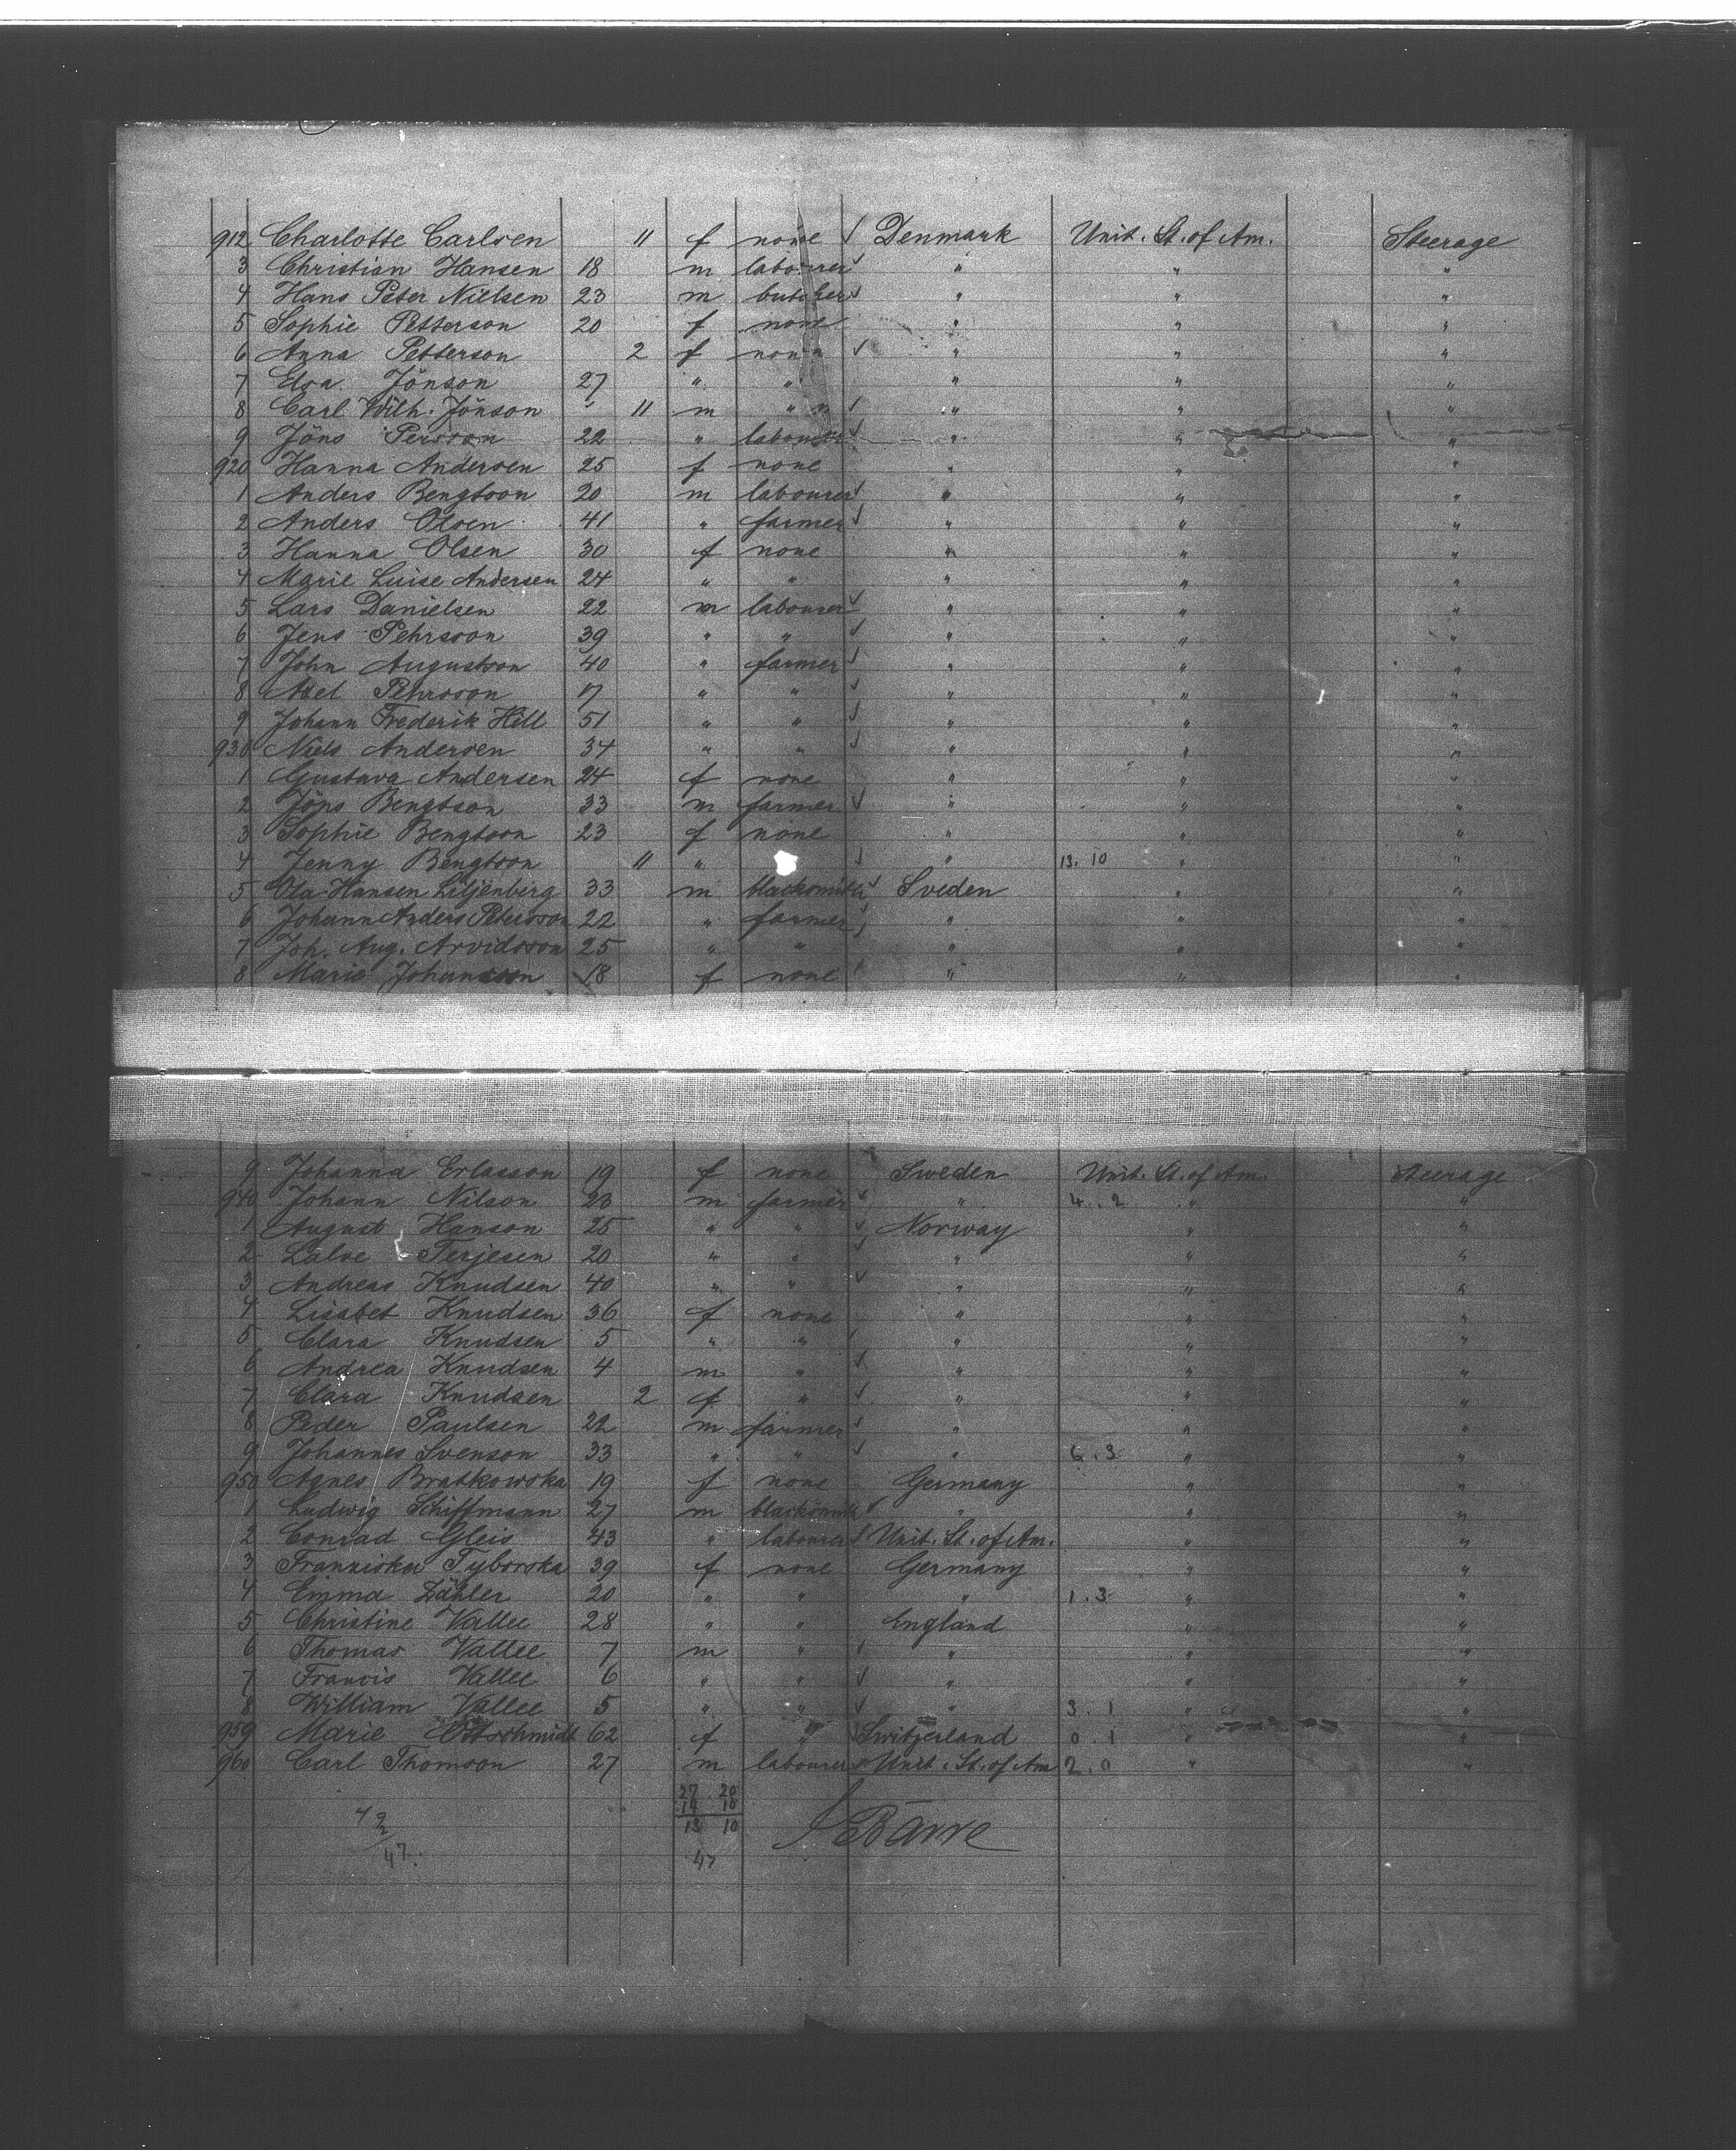 912 Charlotte Carlsen 11 f none ✓ Denmark Unit. St. of Am. Steerage
3 Christian Hansen 18 m labourer ✓ " " "
4 Hans Peter Nielsen 23 m butcher ✓ " " "
5 Sophie Petterson 20 f none " " "
6 Anna Petterson 2 f none ✓ " " "
7 Elsa Jönson 27 " " " " "
8 Carl Wilh. Jönson 11 m " ✓ " " "
9 Jöns Persson 22 " labourer ✓ " " "
920 Hanna Andersen 25 f none " " "
1 Anders Bengtson 20 m labourer ✓ " " "
2 Anders Olsen 41 " farmer ✓ " " "
3 Hanna Olsen 30 f none " " "
4 Marie Luise Andersen 24 " " " " "
5 Lars Danielsen 22 m labourer ✓ " " "
6 Jens Pehrsson 39 " " ✓ " " "
7 John Augustson 40 " farmer ✓ " " "
8 Axel Pehrsson 17 " " ✓ " " "
9 Johann Frederik Hill 51 " " ✓ " " "
930 Niels Andersen 34 " " ✓ " " "
1 Gustava Andersen 24 f none " " "
2 Jöns Bengtson 33 m farmer ✓ " " "
3 Sophie Bengtson 23 f none " " "
4 Jenny Bengtson 11 " ✓ " 13. 10 " "
5 Ola Hansen Liljenberg 33 m blacksmith ✓ Sveden " "
6 Johann Anders Petersson 22 " farmer ✓ " " "
7 Joh. Aug. Arvidsson 25 " " " " "
8 Marie Johansson 18 f none " " "
9 Johanna Erlasson 19 f none Sweden Unit. St. of Am. Steerage
940 Johann Nilson 23 m farmer ✓ " 4. 2 " "
1 August Hanson 25 " " ✓ Norway " "
2 Lalve Terjesen 20 " " ✓ " " "
3 Andreas Knudsen 40 " " ✓ " " "
4 Lisabet Knudsen 36 f none " " "
5 Clara Knudsen 5 " " " " "
6 Andrea Knudsen 4 m " ✓ " " "
7 Clara Knudsen 2 f " ✓ " " "
8 Peder Paulsen 22 m farmer ✓ " " "
9 Johannes Svenson 33 " " ✓ " 6. 3 " "
950 Agnes Bratkowska 19 f none Germany " "
1 Ludwig Schiffmann 27 m blacksmith ✓ " " "
2 Conrad Gleis 43 " labourer ✓ Unit. St. of Am. " "
3 Franziska Tyborska 39 f none Germany " "
4 Emma Zähler 20 " " " 1. 3 " "
5 Christine Vallee 28 " " England " "
6 Thomas Vallee 7 m " ✓ " " "
7 Francis Vallee 6 " " ✓ " " "
8 William Vallee 5 " " ✓ " 3. 1 " "
959 Marie Ottschmidt 62 f " Switzerland 0. 1 " "
960 Carl Thomson 27 m labourer Unit. St. of Am 2. 0 " "
27 20
14 10
13 10
47
47